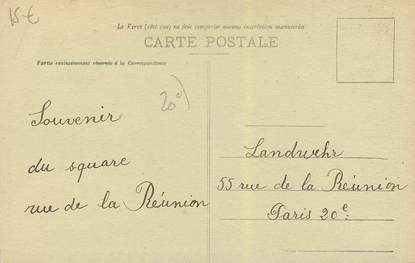 15€
Le Verso (côté vue) ne doit comporter aucune inscription manuscrite
CARTE POSTALE
Partie exclusivement réservée à la Correspondance
20e)
Souvenir
du square
rue de la Réunion
Landwehr
55 rue de la Réunion
Paris 20e